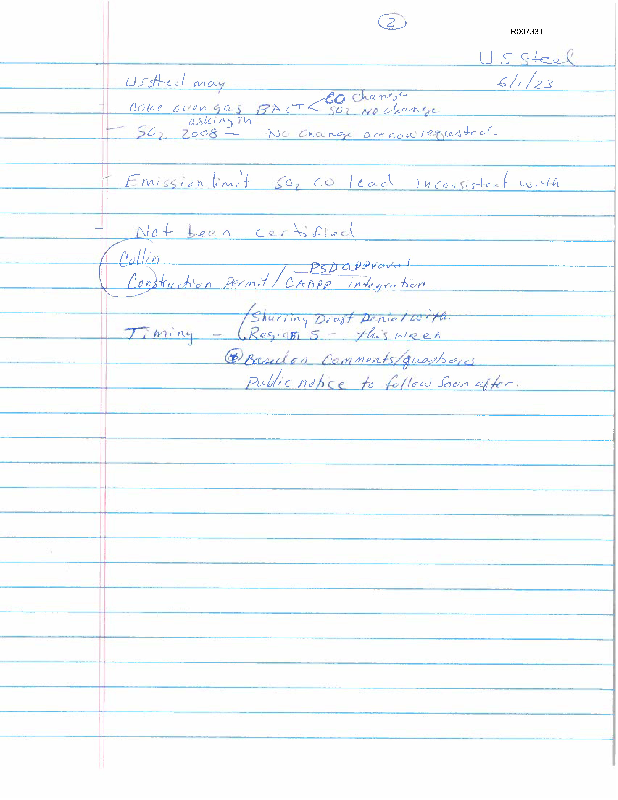 2
R007331
U.S Steel
6/1/23
US Steel may
coke oven gas BACT < CO change
SO2 No change
asking in
- SO2 2008 - No change are now requested.
- Emission limit SO2 CO lead inconsistent with
- Not been certified
Collin
PSD approval
Construction Permit / CAAPP integration
Timing - Sharring Draft Denial with
Region 5 - this week
Based on Comments/questions
Public notice to follow soon after.